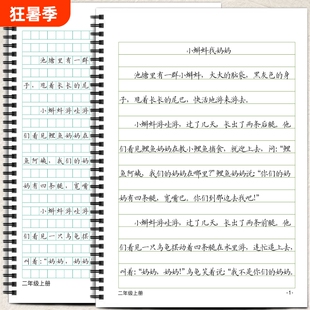 狂暑季
池塘里有一群
子，甩着长长的尾
小蝌蚪游哇游
们看见鲤鱼妈妈在
鱼阿姨，我们的妈
妈有四条腿，宽嘴
小蝌蚪游哇游
们看见一只乌龟摆
叫着：“妈妈，妈妈
二年级上册
小蝌蚪找妈妈
池塘里有一群小蝌蚪，大大的脑袋，黑灰色的身
子，甩着长长的尾巴，快活地游来游去。
小蝌蚪游哇游，过了几天，长出了两条后腿。他
们看见鲤鱼妈妈在教小鲤鱼捕食，就迎上去，问：“鲤
鱼阿姨，我们的妈妈在哪里？”鲤鱼妈妈说：“你们的妈
妈有四条腿，宽嘴巴。你们到那边去找吧！”
小蝌蚪游哇游，过了几天，长出了两条前腿。他
们看见一只乌龟摆动着四条腿在水里游，连忙追上去，
叫着：“妈妈，妈妈！”乌龟笑着说：“我不是你们的妈妈。
二年级上册
-1-